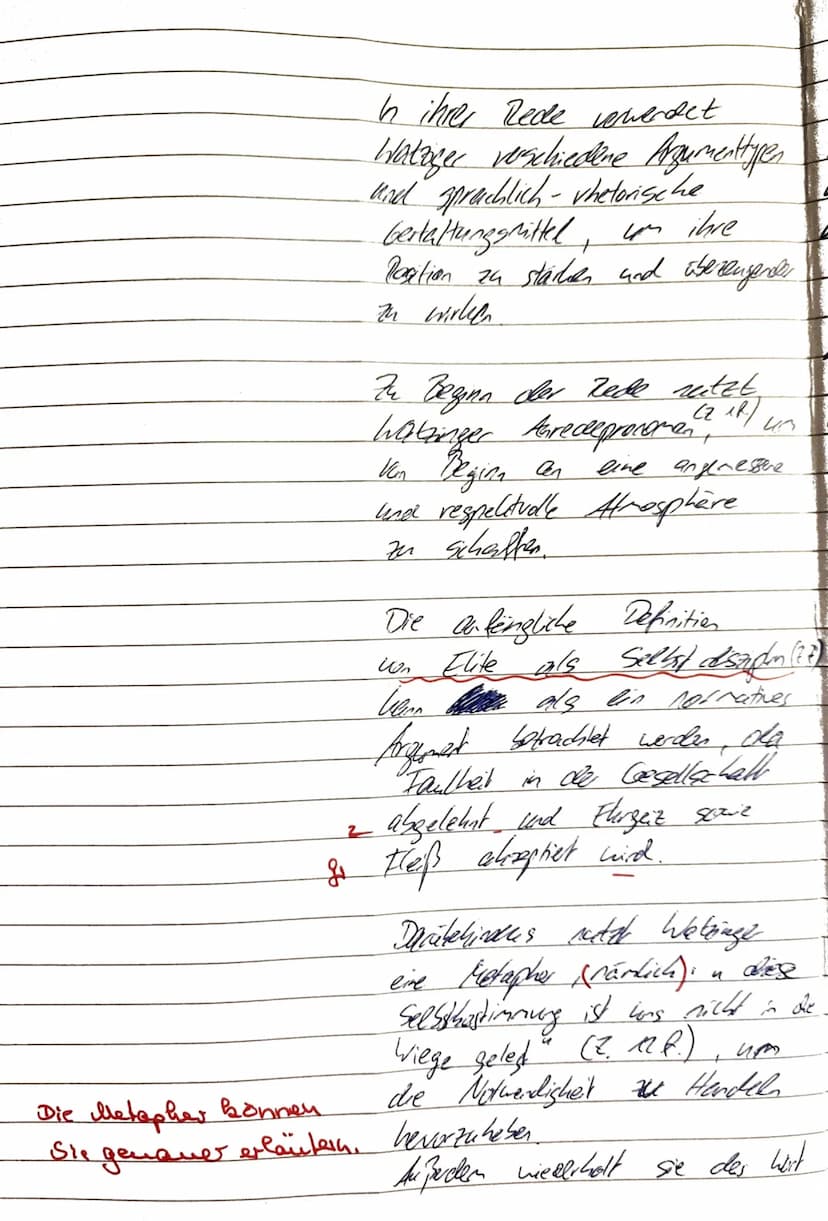 In ihrer Rede verwendet
Watzinger verschiedene Argumenttypen
und sprachlich-rhetorische
Gestaltungsmittel, um ihre
Position zu stärken und überzeugender
zu wirken.
Zu Beginn der Rede nutzt
Watzinger Anredepronomen (Z 1f.), um
von Beginn an eine angemessene
und respektvolle Atmosphäre
zu schaffen.
Die anfängliche Definition
von Elite als Selbstdisziplin (Z 7)
kann als ein normatives
Argument betrachtet werden, da
Faulheit in der Gesellschaft
z abgelehnt und Ehrgeiz sowie
Fleiß akzeptiert wird.
Darüberhinaus nutzt Watzinger
eine Metapher, (nämlich): "diese
Selbstbestimmung ist uns nicht in die
Wiege gelegt" (Z. 12f.), um
die Notwendigkeit zu Handeln
Die Metapher können
hervorzuheben.
Sie genauer erläutern.
Außerdem wiederholt sie das Wort